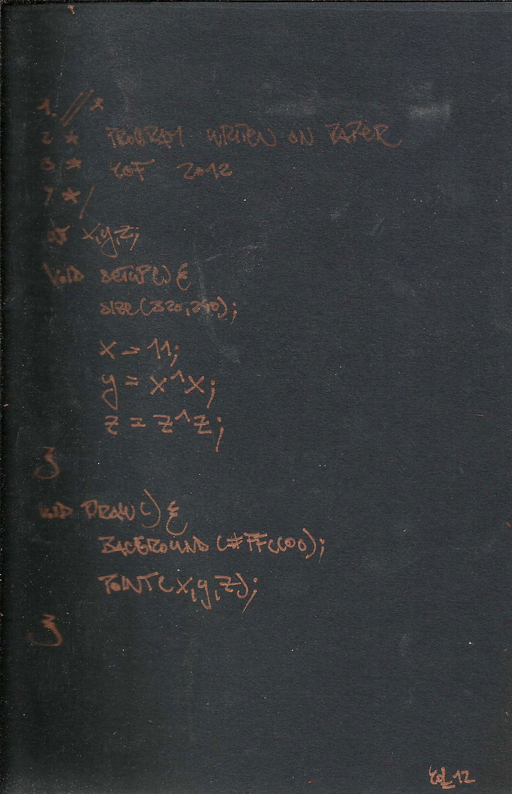 1. //*
2 * PROGRAM WRITTEN ON PAPER
3 * 2012
*/
x,y,z;
VOID SETUP() {
SIZE(320,240);
x = 11;
y = x^x;
z = z^z;
}
VOID DRAW() {
BACKGROUND (#FFCC00);
POINT(x,y,z);
}
12